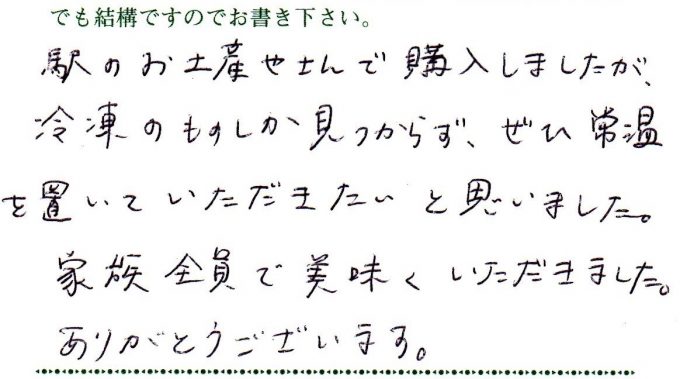 でも結構ですのでお書き下さい。
駅のお土産やさんで購入しましたが、
冷凍のものしか見つからず、ぜひ常温
を置いていただきたいと思いました。
家族全員で美味くいただきました。
ありがとうございます。